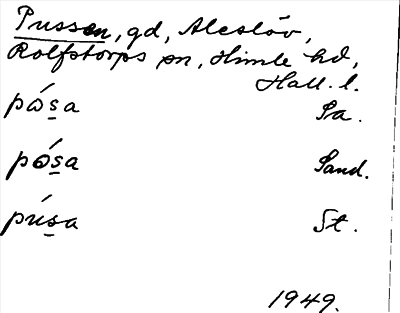 Pussen, gd, Aleslöv,
Rolfstorps sn, Himle hd,
Hall. l.
pώs̲a Sa.
pó̵s̲a Sand.
pús̲a St.
1949.